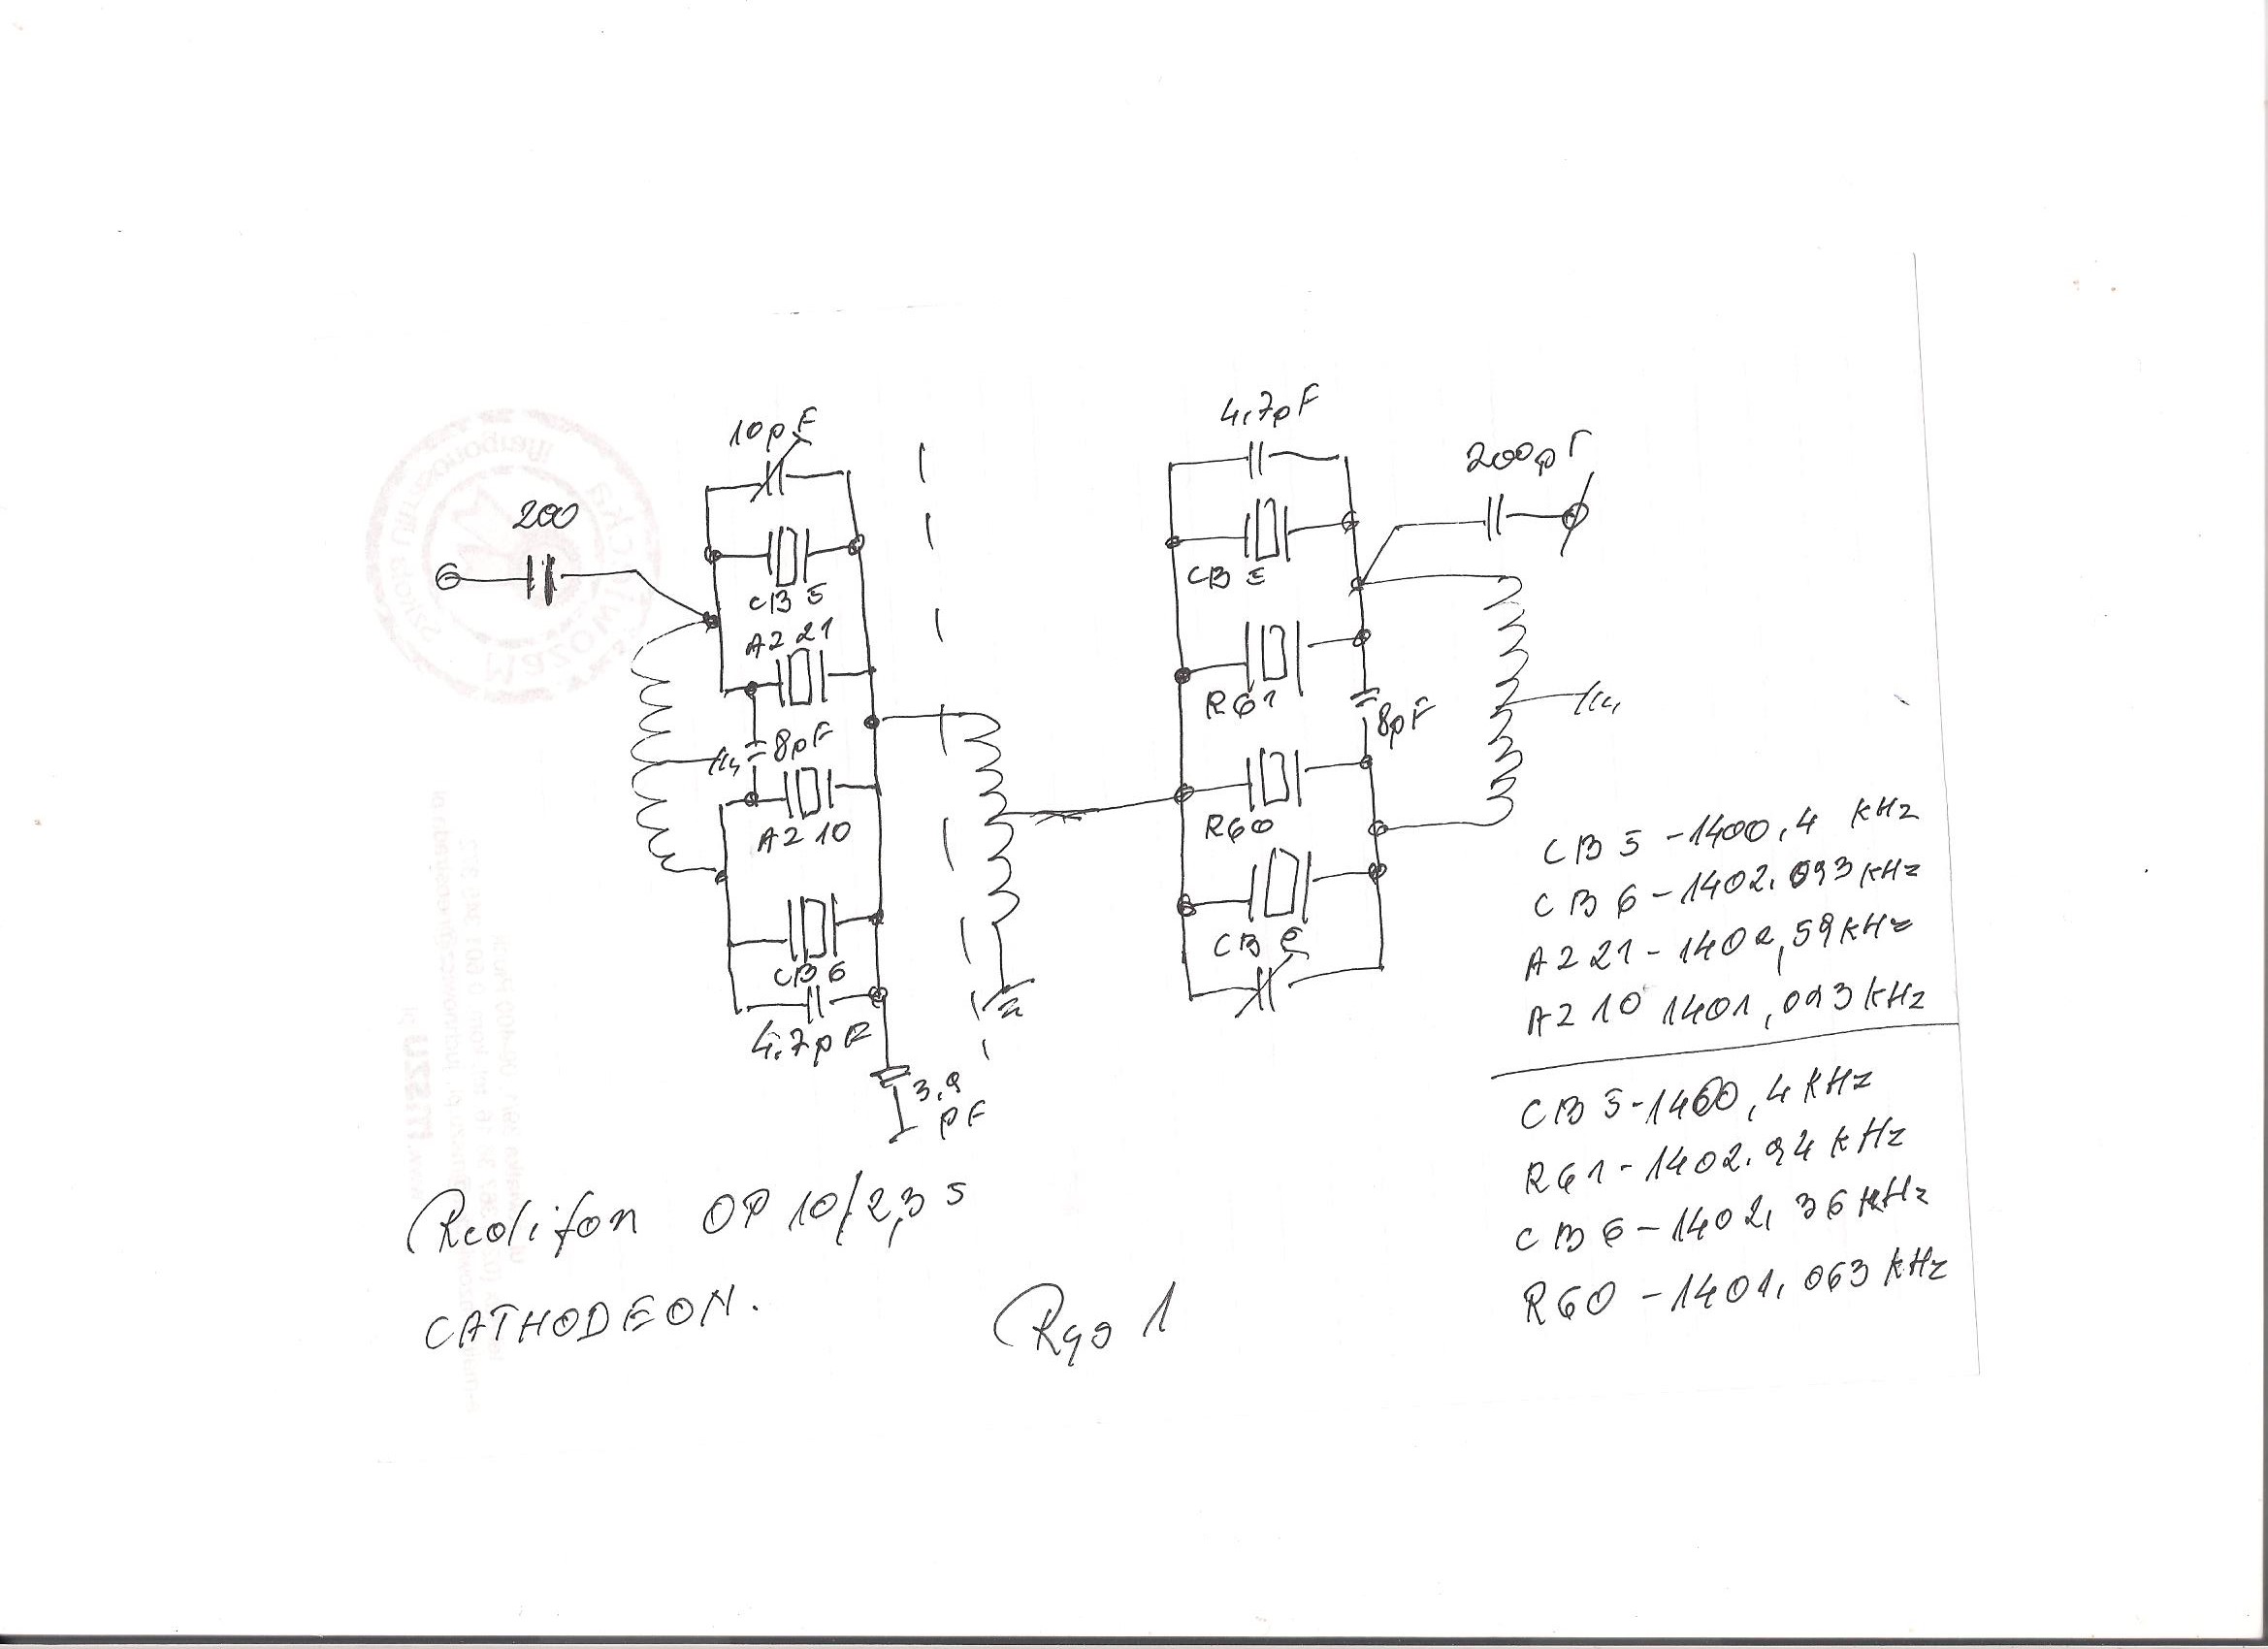 10pF
4,7pF
200pF
200
CB 5
CB 5
A2 21
R61
8pF
8pF
A2 10
R60
CB 6
CB 6
4,7pF
3,9
pF
CB 5 - 1400,4 kHz
CB 6 - 1402,093 kHz
A2 21 - 1402,59 kHz
A2 10 1401,093 kHz
CB 5 - 1400,4 kHz
R61 - 1402,94 kHz
CB 6 - 1402,36 kHz
R60 - 1401,063 kHz
Redifon OP 10/2,3 s
CATHODEON.
Rys 1